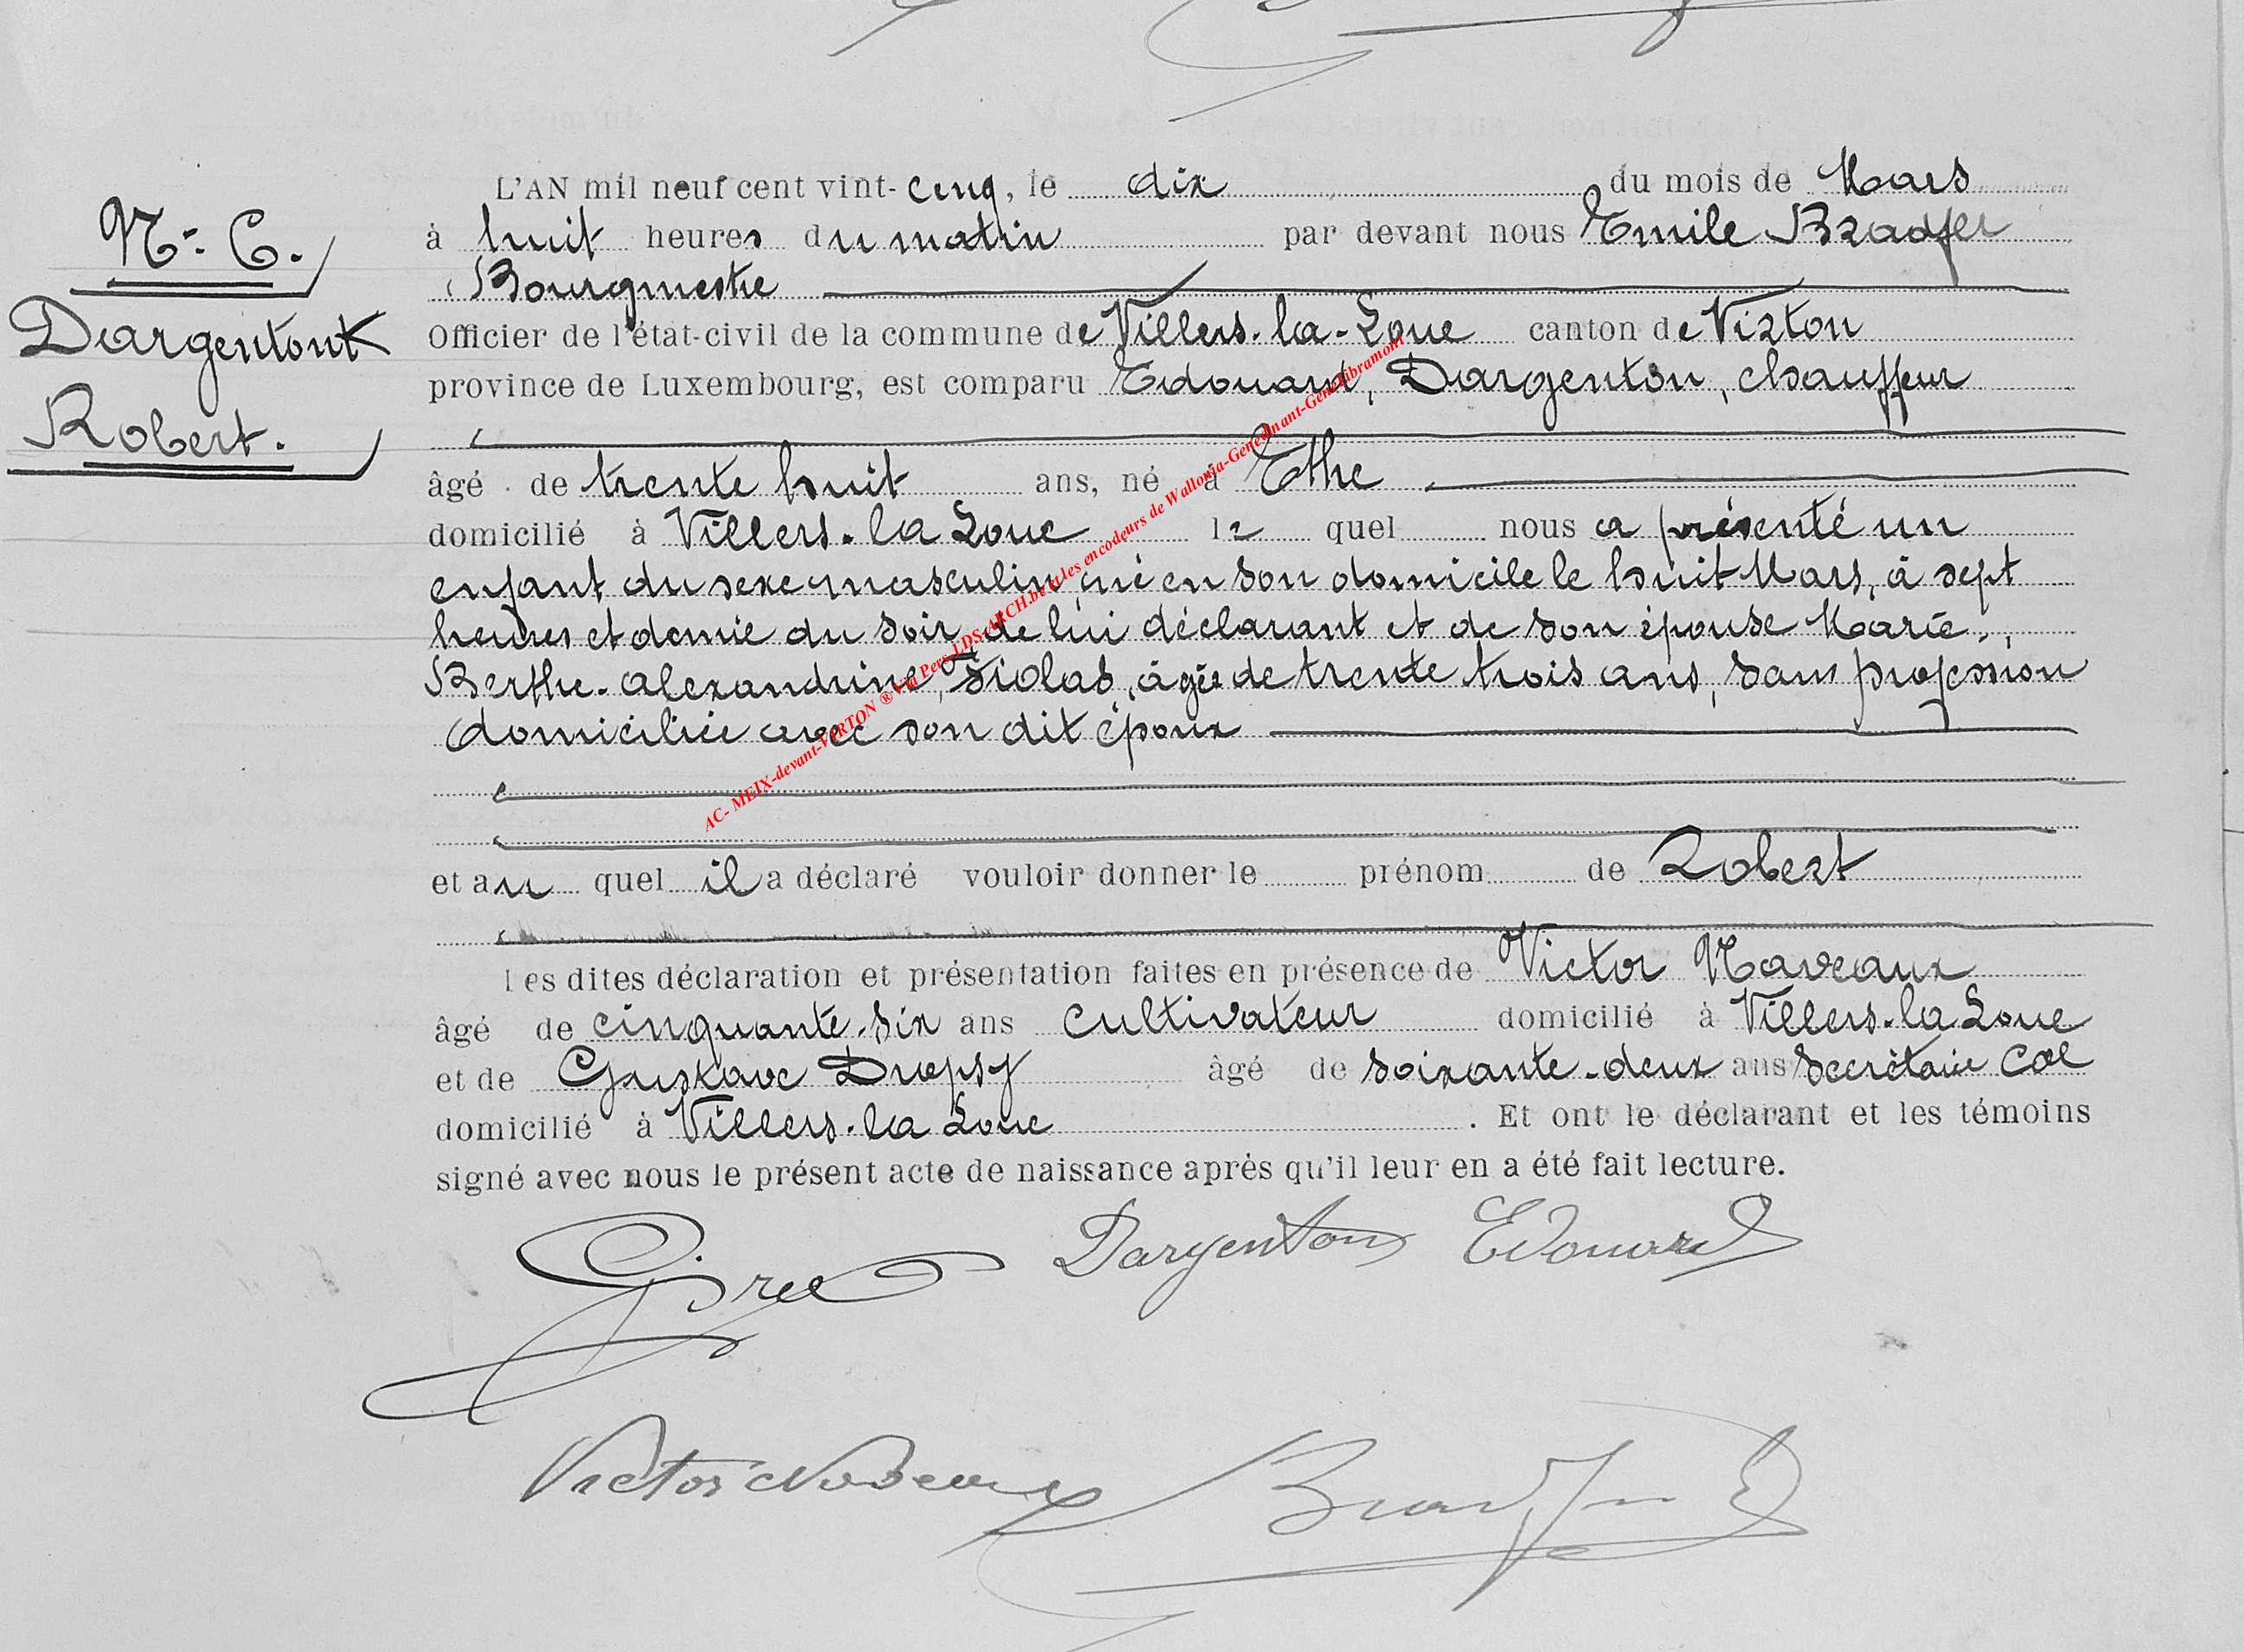 N= 6.
Dargentont
Robert.
L'AN mil neuf cent vint-cinq, le dix du mois de Mars
à huit heures du matin par devant nous Emile Bradfer
Bourgmestre
Officier de l'état-civil de la commune de Villers-la-Loue canton de Virton
province de Luxembourg, est comparu Edouard, Dargenton, chauffeur
âgé de trente huit ans, né à Ethe
domicilié à Villers-la Loue le quel nous a présenté un
enfant du sexe masculin, né en son domicile le huit Mars, à sept
heures et demie du soir, de lui déclarant et de son épouse Marie,
Berthe-Alexandrine, âgée de trente trois ans, sans profession
domiciliée avec son dit époux
et au quel il a déclaré vouloir donner le prénom de Robert
Les dites déclaration et présentation faites en présence de Victor Naveaux
âgé de cinquante-six ans cultivateur domicilié à Villers-la Loue
et de Gustave Dropsy âgé de soixante-deux ans Secrétaire Cal
domicilié à Villers-la Loue. Et ont le déclarant et les témoins
signé avec nous le présent acte de naissance après qu'il leur en a été fait lecture.
Dargenton Edouard
Victor Naveaux Bradfer E
AC- MEIX-devant-VIRTON ® Via Pers LDS-ARCH.be et les encodeurs de Wallonia-Genedinant-GeneLibramont